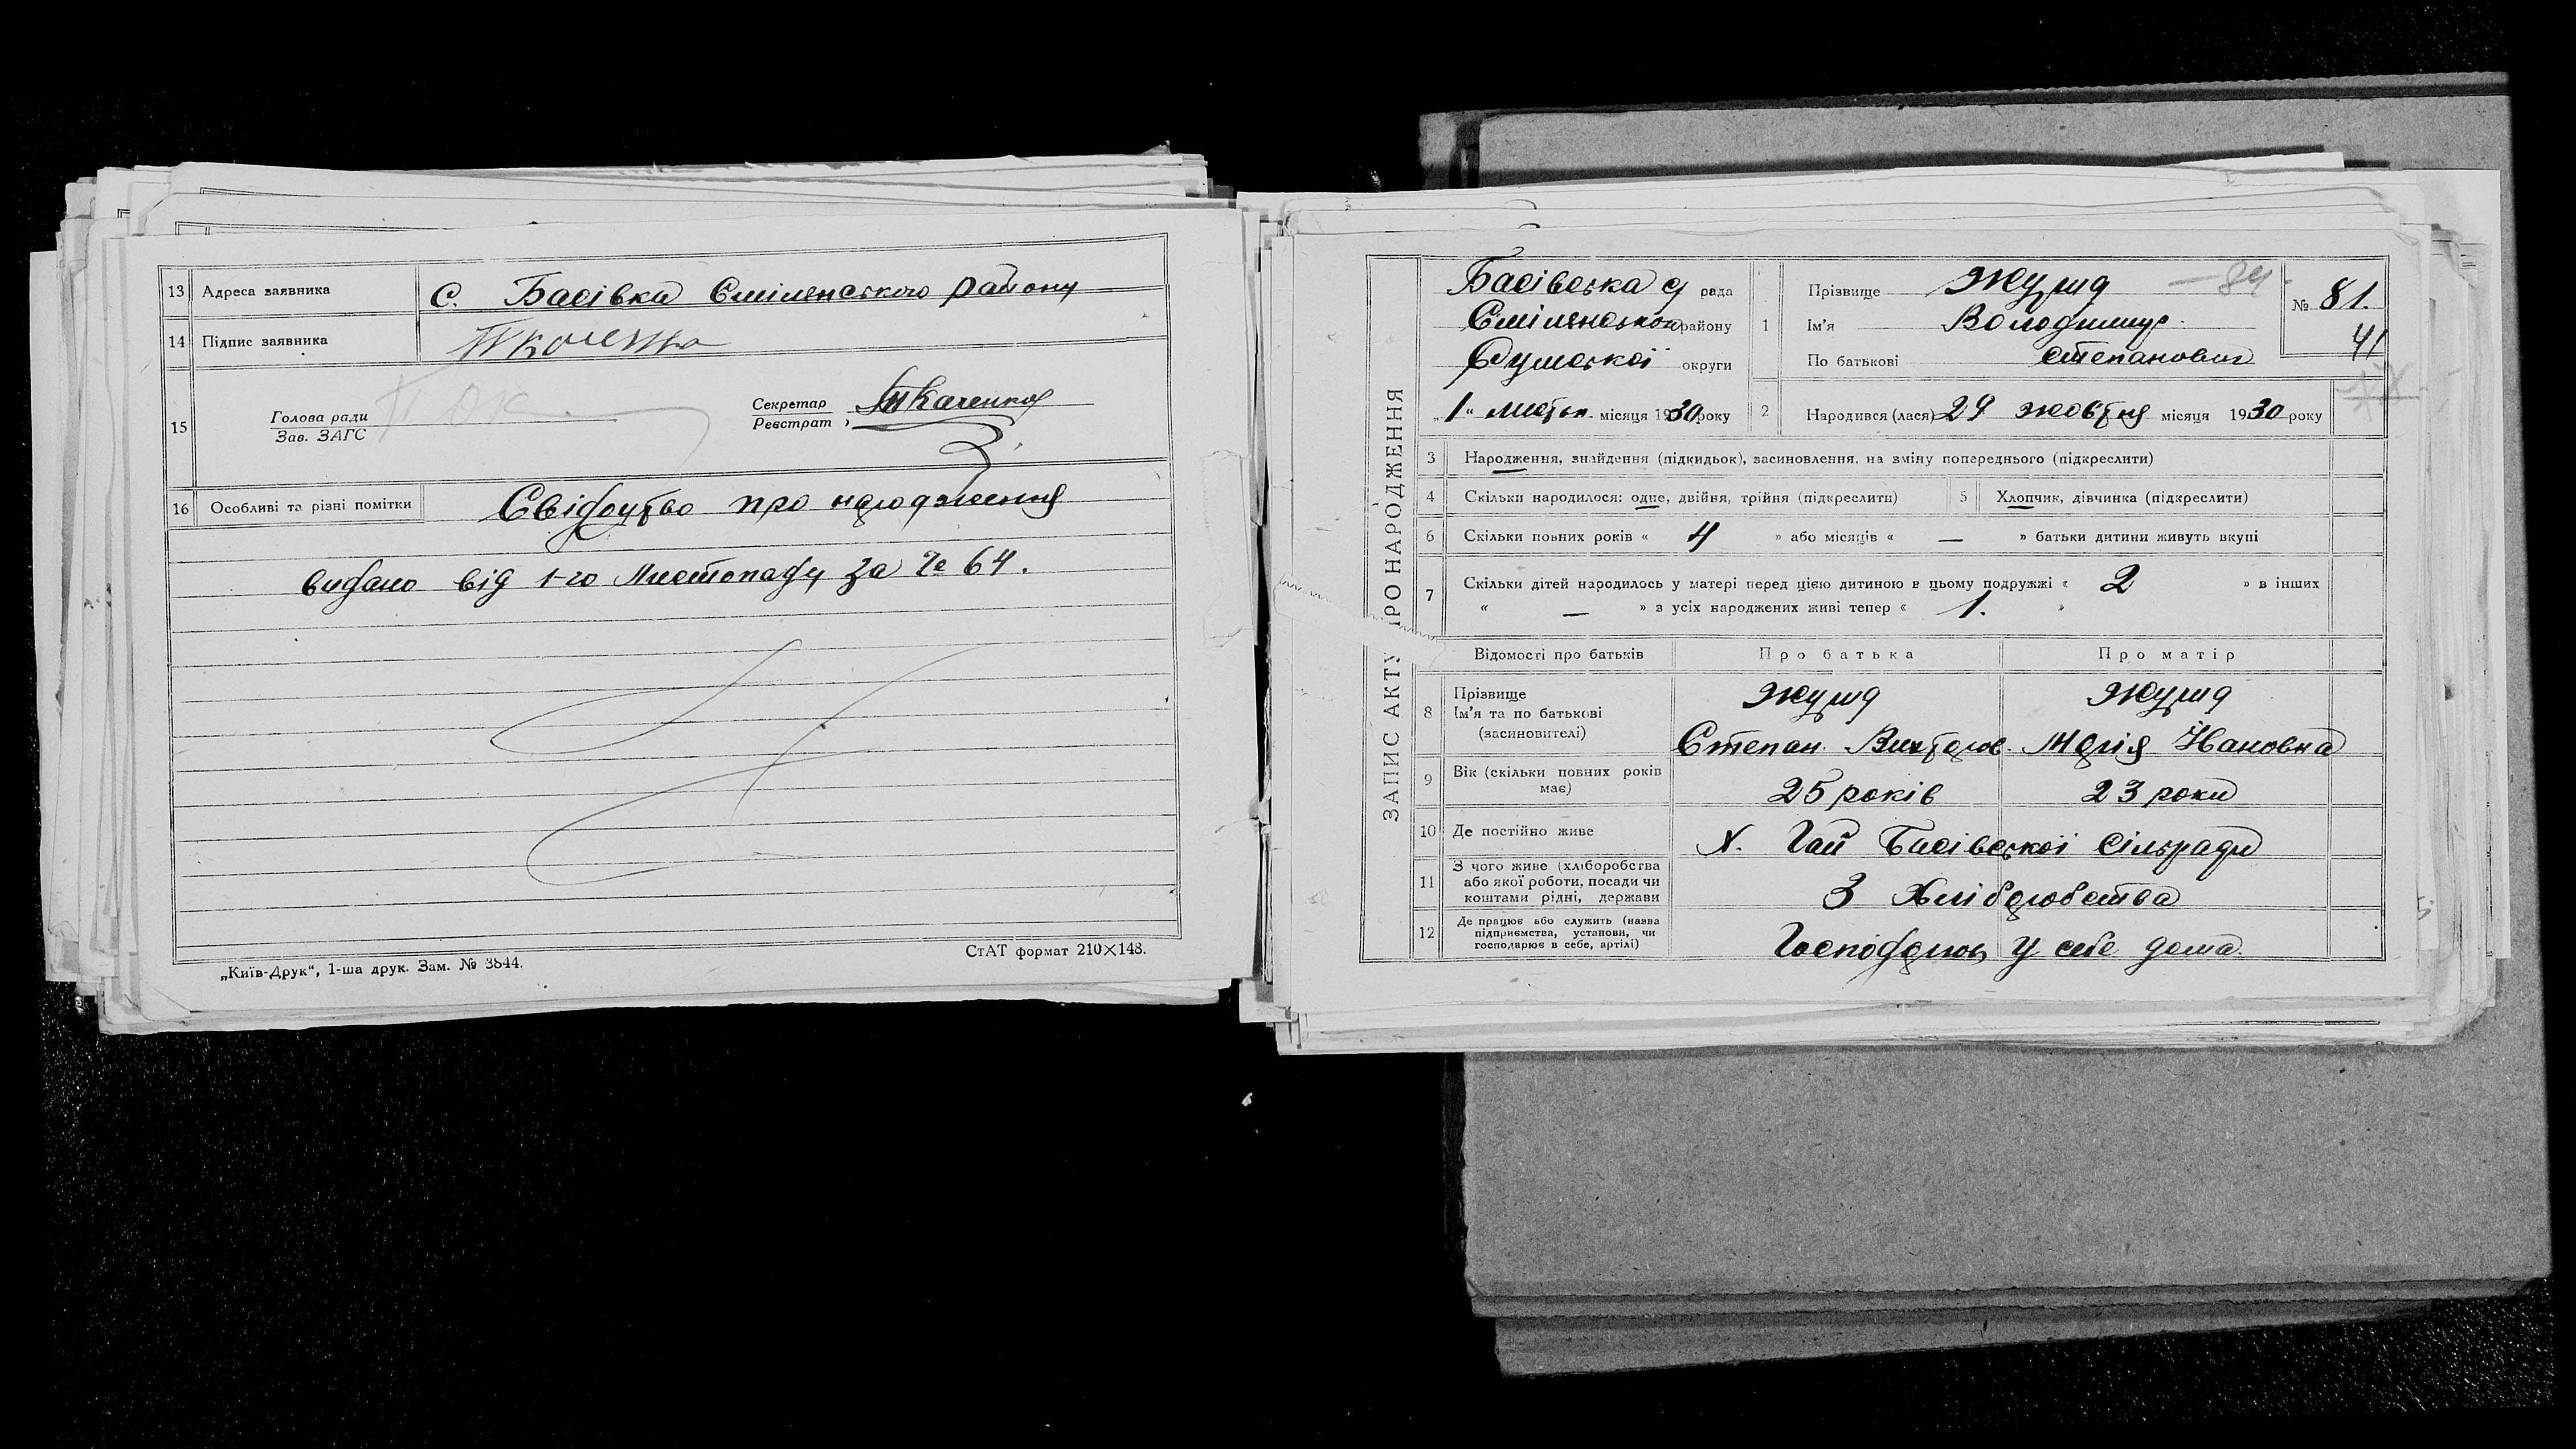 13 Адреса заявника С. Басівка Смілянського району
14 Підпис заявника
15 Голова ради
Зав. ЗАГС
Секретар
Реєстрат
Ткаченко
16 Особливі та різні помітки Свідоцтво про народження
видано від 1-го Листопаду за № 64.
„Київ-Друк“, 1-ша друк. Зам. № 3844.
СтАТ формат 210×148.
ЗАПИС АКТУ ПРО НАРОДЖЕННЯ
Басівська с рада
Смілянського району
Сумської округи
„1“ листоп. місяця 1930 року
1 Прізвище
Ім'я Володимир
По батькові Степанович
№ 81.
41
2 Народився (лася) 29 жовтня місяця 1930 року
3 Народження, знайдення (підкидьок), засиновлення, на зміну попереднього (підкреслити)
4 Скільки народилося: одне, двійня, трійня (підкреслити)
5 Хлопчик, дівчинка (підкреслити)
6 Скільки повних років « 4 » або місяців « — » батьки дитини живуть вкупі
7 Скільки дітей народилось у матері перед цією дитиною в цьому подружжі « 2 » в інших
« — » з усіх народжених живі тепер « 1. »
Відомості про батьків Про батька Про матір
8 Прізвище
Ім'я та по батькові
(засиновителі)
Степан Вікторов. Марія Івановна
9 Вік (скільки повних років
має)
25 років 23 роки
10 Де постійно живе Х. Гай Басівської Сільради
11 З чого живе (хліборобства
або якої роботи, посади чи
коштами рідні, держави
З Хліборобства
12 Де працює або служить (назва
підприємства, установи, чи
господарює в себе, артілі)
у себе дома.